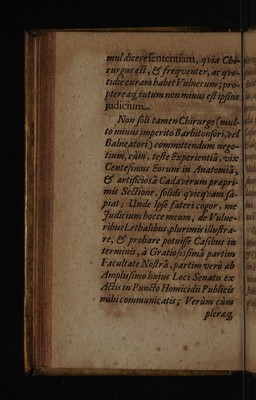 mul dicere sententiam, qvia Chi-
rurgus est, & freqventer, ac qvo-
tidie curam habet Vulnerum; pro-
pterea q; tutum non minus est ipsius
judicium.
Non soli tamen Chirurgo (mul-
to minus imperito Barbitonsori, vel
Balneatori) committendum nego-
tium, cùm, teste Experientiâ, vix
Centesimus Eorum in Anatomiâ,
& artificiosâ Cadaverum propri-
mis Sectione, solidi qvicqvam sa-
piat; Unde Ipse fateri cogor, me
Judicium hocce meum, de Vulne-
ribus Lethalibus, plurimis illustra-
re, & probare potuisse Casibus in
terminis, à Gratiosissimâ partim
Facultate Nostrâ, partim verò ab
Amplissimo hujus Loci Senatu ex
Actis in Puncto Homicidii Publicis
mihi communicatis; Verùm cùm
pleraq;